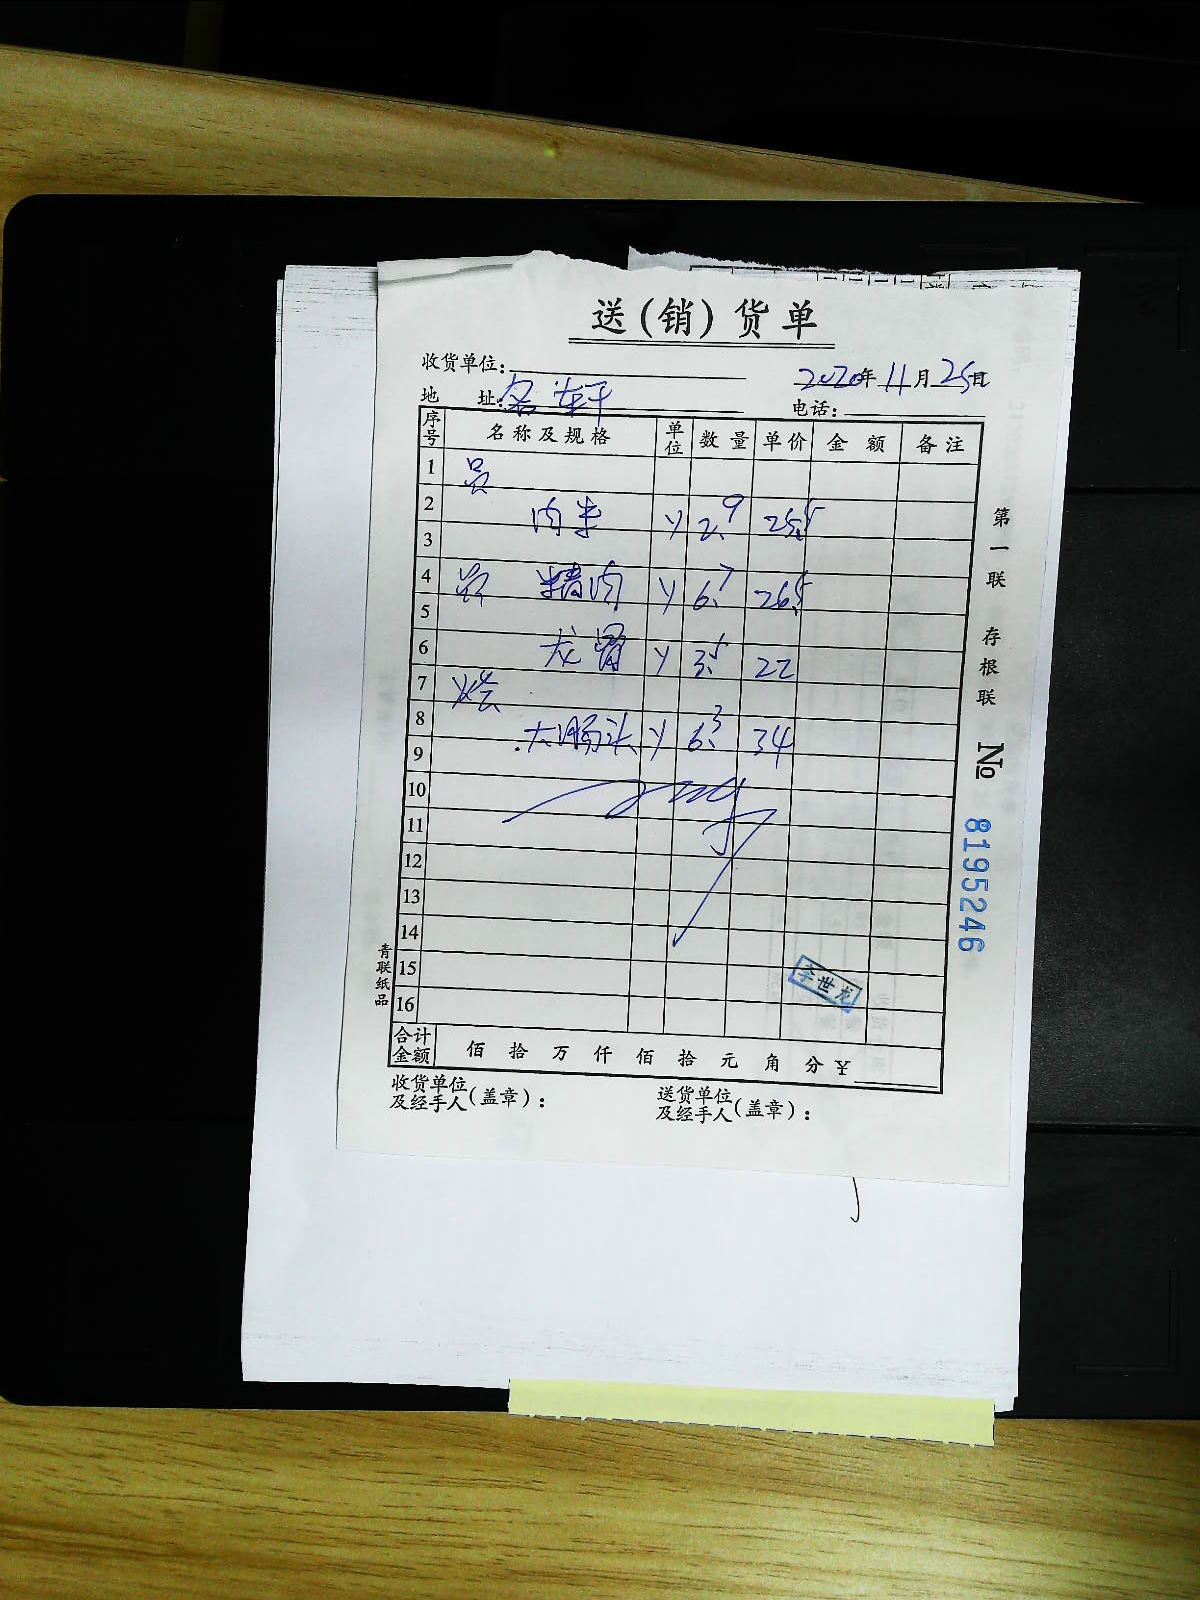 送(销)货单
收货单位:
2020年11月25日
地 址:名轩
电话:
序号 名称及规格 单位 数量 单价 金额 备注
1 员
2 肉半 y 2.9 25.5
3
4 精肉 y 6.7 26.5
5
6 龙骨 y 3.5 22
7 烩
8 大肠头 y 6.3 34
9
10
11
12
13
14
15
16
李世龙
合计金额 佰 拾 万 仟 佰 拾 元 角 分 ¥
收货单位及经手人(盖章):
送货单位及经手人(盖章):
第一联 存根联 No 8195246
青联纸品